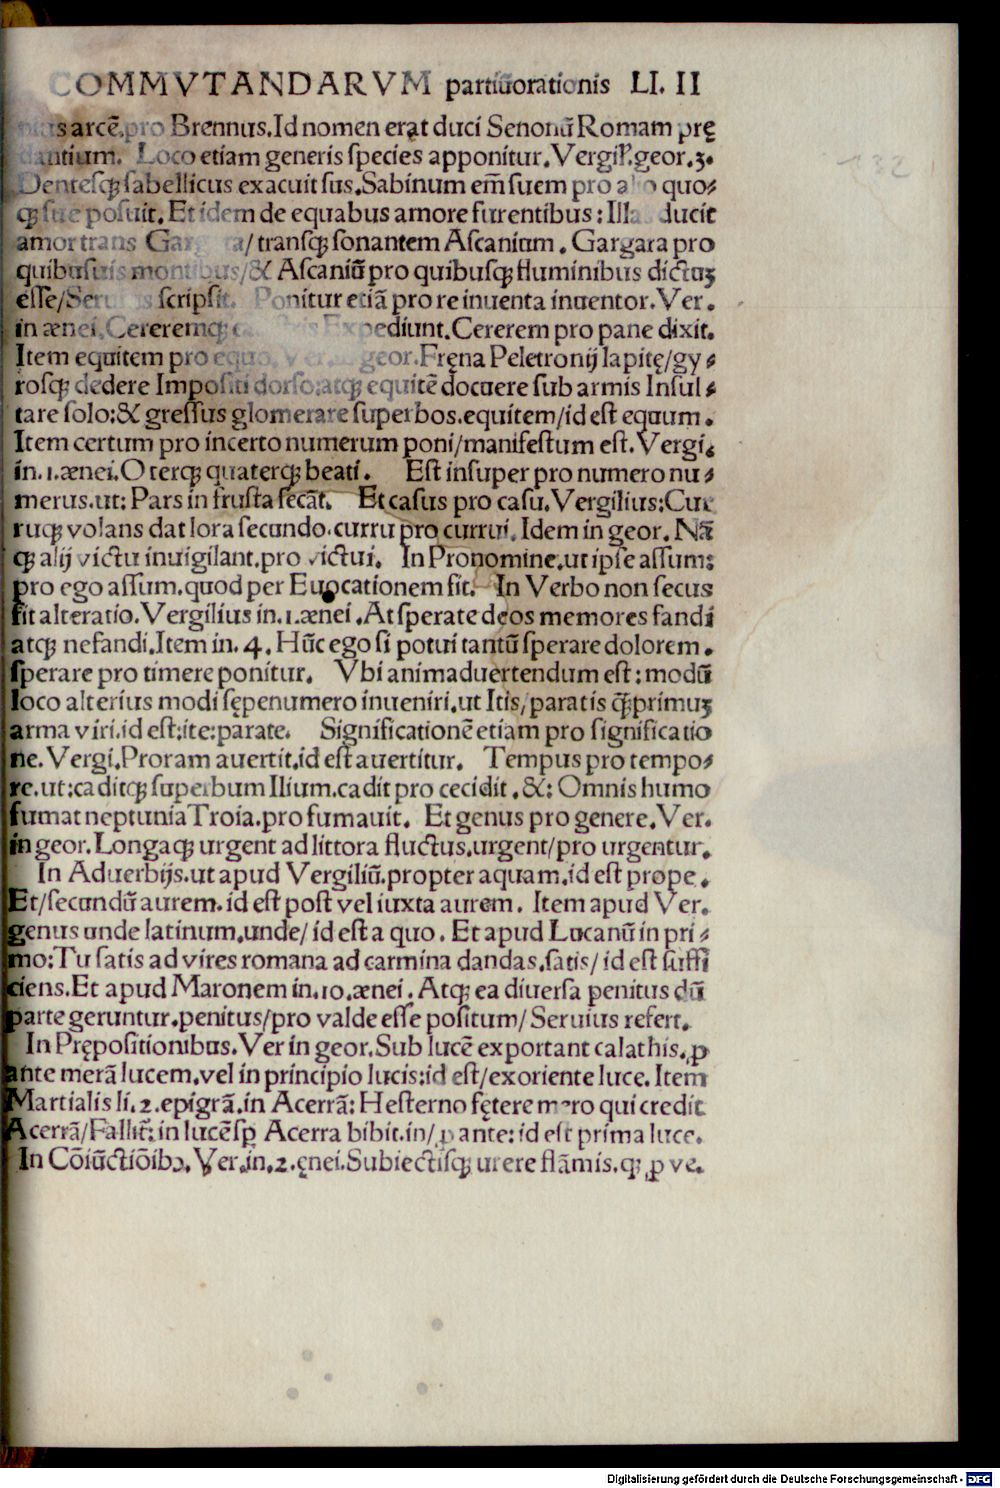 COMMVTANDARVM partiũorationis LI. II
s arcẽ.pro Brennus.Id nomen erat duci Senonũ Romam prę
dantium. Loco etiam generis species apponitur.Vergiľ.geor.3.
Dentesq; sabellicus exacuit sus.Sabinum em̃ suem pro alio quo-
q; sue posuit. Et idem de equabus amore furentibus: Illas ducit
amor trans Gargara/transq; sonantem Ascanium. Gargara pro
quibusuis montibus/& Ascaniũ pro quibusq; fluminibus dictuʒ
esse/Seruius scripsit. Ponitur etiã pro re inuenta inuentor.Ver.
in ænei.Cereremq; Expediunt.Cererem pro pane dixit.
Item equitem pro equo.Ver. geor.Fręna Peletronij lapitę/gy-
rosq; dedere Impositi dorso:atq; equitẽ docuere sub armis Insul-
tare solo:& gressus glomerare superbos.equitem/id est equum.
Item certum pro incerto numerum poni/manifestum est.Vergi.
in.1.ænei.O terq; quaterq; beati. Est insuper pro numero nu-
merus.ut: Pars in frusta secãt. Et casus pro casu.Vergilius:Cur
ruq; volans dat lora secundo.curru pro currui. Idem in geor. Nã
q; alij victu inuigilant.pro victui. In Pronomine.ut ipse assum:
pro ego assum.quod per Euocationem fit. In Verbo non secus
fit alteratio.Vergilius in.1.ænei.At sperate deos memores fandi
atq; nefandi.Item in.4.Hũc ego si potui tantũ sperare dolorem.
sperare pro timere ponitur. Vbi animaduertendum est: modũ
loco alterius modi sępenumero inueniri.ut Itis/paratis q̃primuʒ
arma viri.id est:ite:parate. Significationẽ etiam pro significatio
ne. Vergi.Proram auertit.id est auertitur. Tempus pro tempo-
re.ut:caditq; superbum Ilium.cadit pro cecidit.&: Omnis humo
fumat neptunia Troia.pro fumauit. Et genus pro genere.Ver.
in geor. Longaq; urgent ad littora fluctus.urgent/pro urgentur.
In Aduerbijs.ut apud Vergiliũ.propter aquam.id est prope.
Et/secundũ aurem.id est post vel iuxta aurem. Item apud Ver.
genus unde latinum.unde/id est a quo. Et apud Lucanũ in pri-
mo:Tu satis ad vires romana ad carmina dandas.satis/id est suffi
ciens.Et apud Maronem in.10.ænei. Atq; ea diuersa penitus dũ
parte geruntur.penitus/pro valde esse positum/Seruius refert.
In Prępositionibus.Ver in geor.Sub lucẽ exportant calathis.ꝓ
ante merã lucem.vel in principio lucis:id est/exoriente luce. Item
Martialis li.2.epigrã.in Acerrã: Hesterno fętere mero qui credit
Acerrã/Fallit̃:in lucẽ sp̃ Acerra bibit.in/ꝓ ante:id est prima luce.
In Cõiũctiõibꝰ.Ver.in.2.ęnei.Subiectisq; urere flãmis.q; ꝓ ve.
132
Digitalisierung gefördert durch die Deutsche Forschungsgemeinschaft - DFG